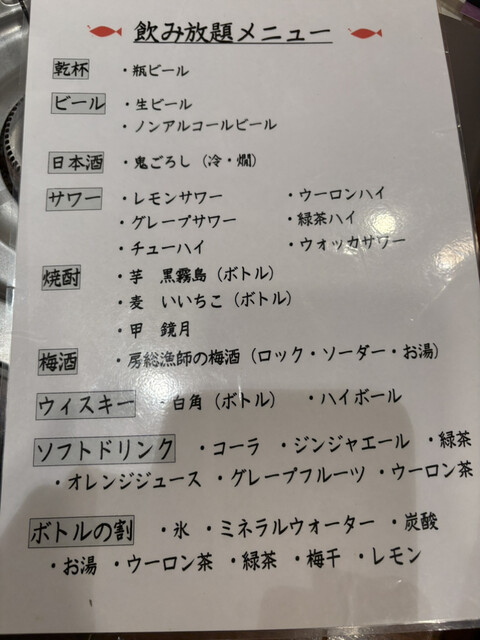 飲み放題メニュー
乾杯 ・瓶ビール
ビール ・生ビール
・ノンアルコールビール
日本酒 ・鬼ごろし（冷・燗）
サワー ・レモンサワー ・ウーロンハイ
・グレープサワー ・緑茶ハイ
・チューハイ ・ウォッカサワー
焼酎 ・芋 黒霧島（ボトル）
・麦 いいちこ（ボトル）
・甲 鏡月
梅酒 ・房総漁師の梅酒（ロック・ソーダー・お湯）
ウィスキー ・白角（ボトル） ・ハイボール
ソフトドリンク ・コーラ ・ジンジャエール ・緑茶
・オレンジジュース ・グレープフルーツ ・ウーロン茶
ボトルの割 ・氷 ・ミネラルウォーター ・炭酸
・お湯 ・ウーロン茶 ・緑茶 ・梅干 ・レモン